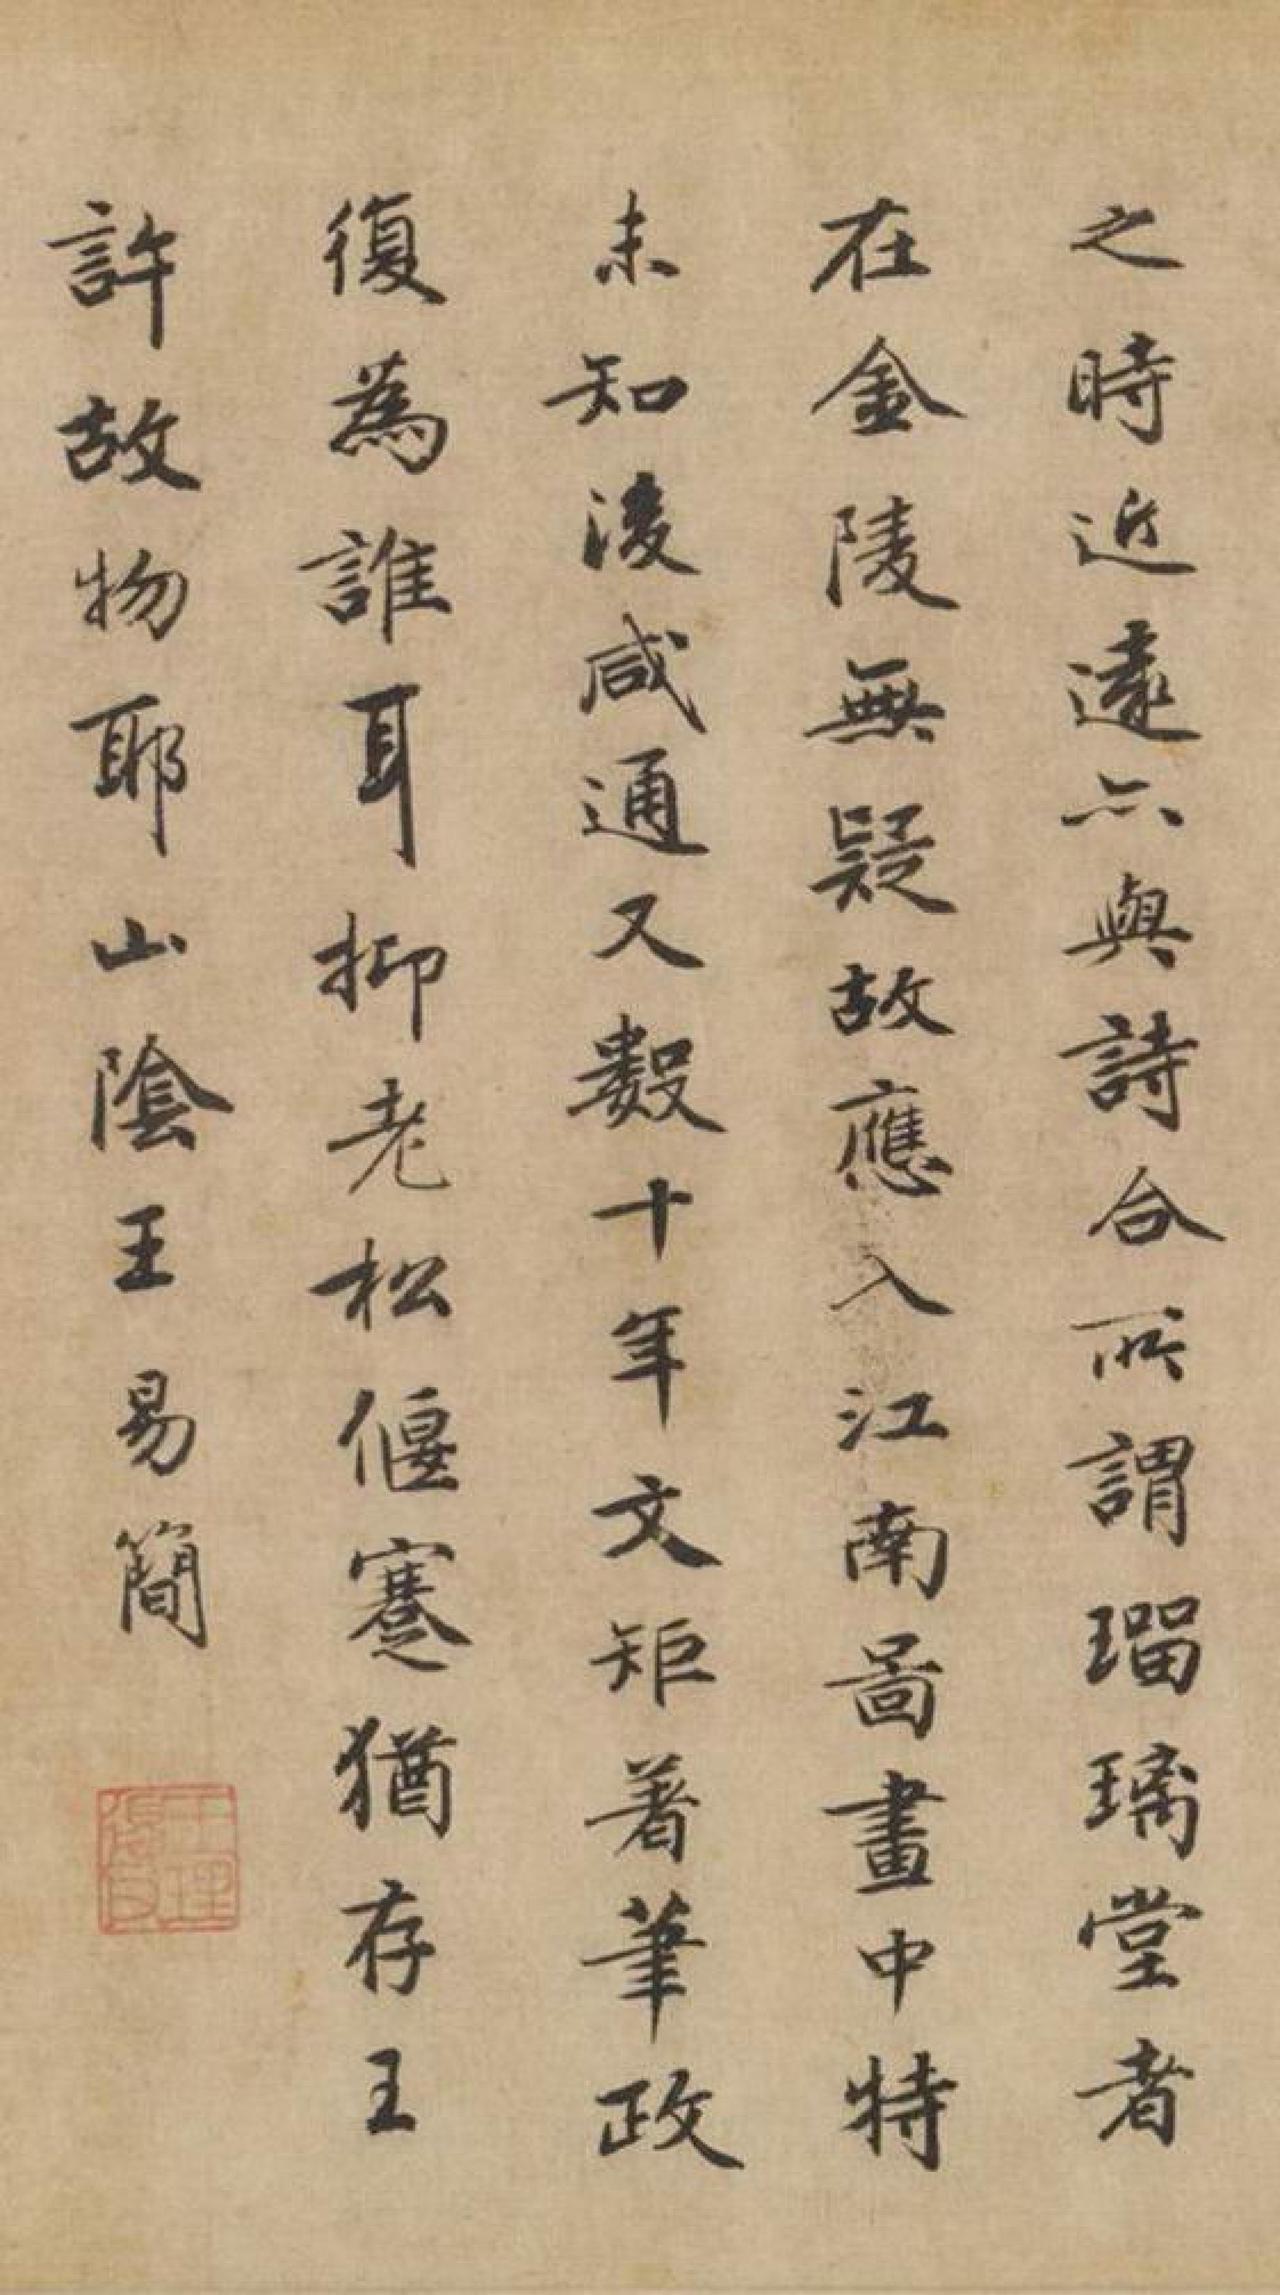 之時近遠亦與詩合所謂瑠璃堂者
在金陵無疑故應入江南啚畫中特
未知後咸通又數十年文矩著筆政
復為誰耳抑老松偃蹇猶存王
許故物耶山陰王易簡
王理